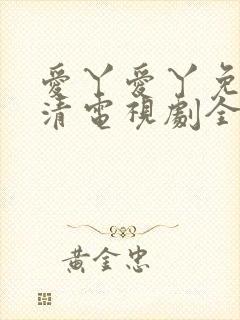 愛丫愛丫免
清電視劇全
黃金忠